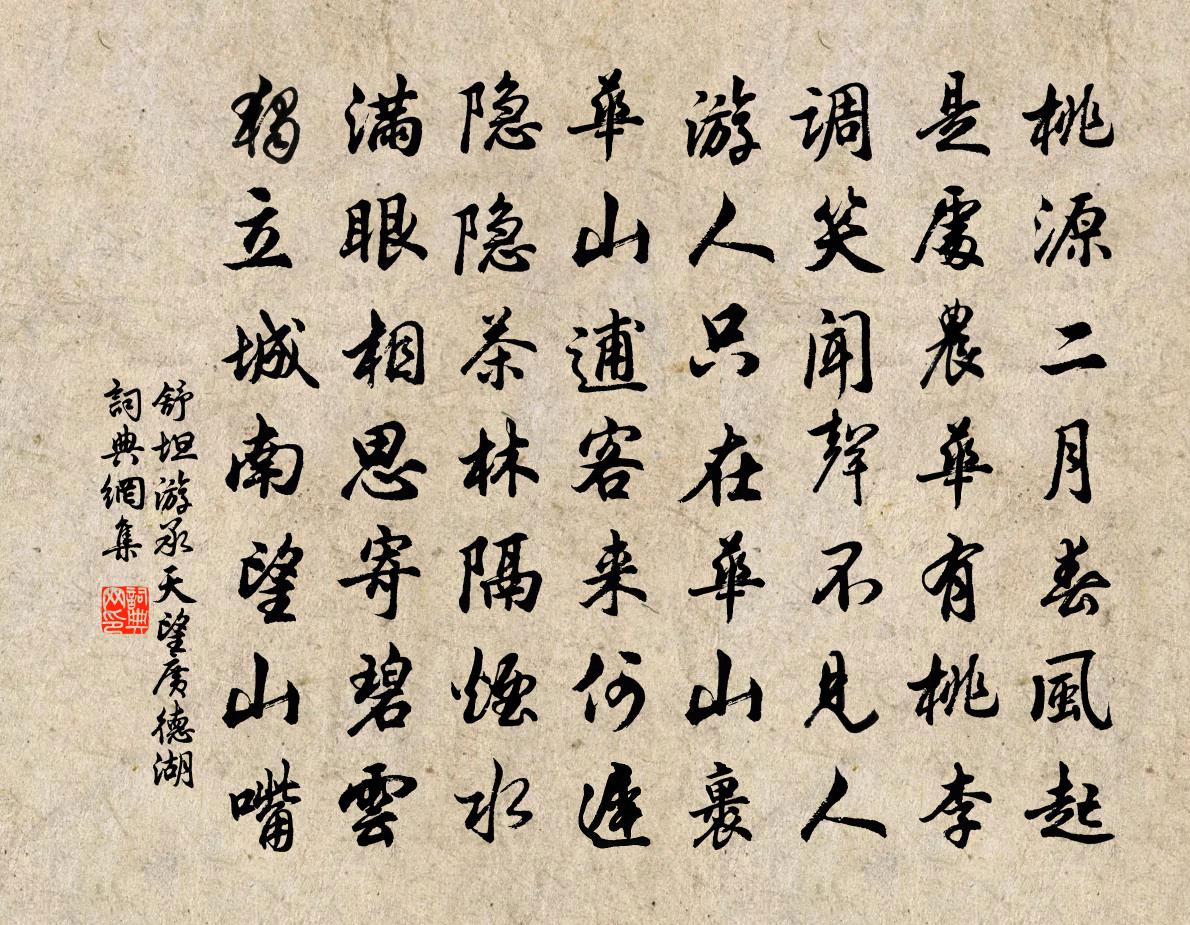 桃源二月春風起
是處農華有桃李
调笑闻聲不見人
游人只在華山裏
華山逋客来何遲
隐隐茶林隔煙水
满眼相思寄碧雲
獨立城南望山嘴
舒坦游承天望廣德湖
詞典網集
詞典
网印